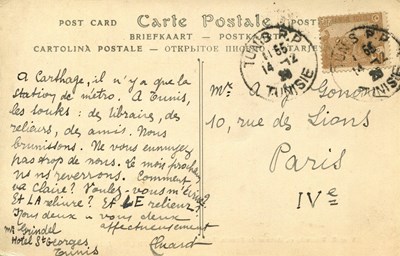 POST CARD Carte Postale
BRIEFKAART - POSTKARTE
CARTOLINA POSTALE - ОТКРЫТОЕ
TUNIS R.P.
1155
14 -12
28
TUNISIE
TUNIS R.P.
1155
14 -12
28
TUNISIE
A Carthage, il n'y a que la
station de métro. A Tunis,
les souks : de libraires, des
relieurs, des amis. Nous
brunissons. Ne vous ennuyez
pas trop de nous. Le mois prochain
ns ns reverrons. Comment
va Claire ? Voulez-vous m'écrire ?
Et LA reliure ? Et LE relieur ?
Nous deux à vous deux
affectueusement
Eluard
Mr Grindel
Hotel St Georges
Tunis
Mr A. J. Gonon
10, rue des Lions
Paris
IVe